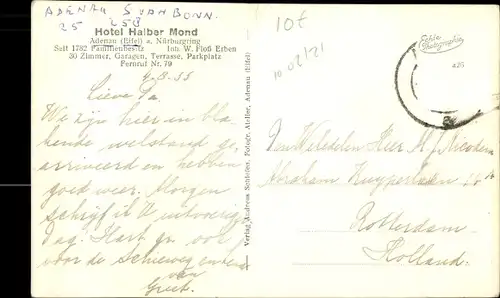 ADENAU S VAN BONN.
25 258
10f
Hotel Halber Mond
Adenau (Eifel) a. Nürburgring
Seit 1782 Familienbesitz Inh. W. Floß Erben
30 Zimmer, Garagen, Terrasse, Parkplatz
Fernruf Nr. 79
Echte Photographie
426
10-02/21
Lieve Pa.
We zijn hier in bla-
kende welstand ge-
arriveerd en hebben
goed weer. Morgen
schrijf ik U uitvoerig
dag. Hart. gr. ook
voor de Schieweg en
van
Greet.
Verlag Andreas Schleifer, Fotogr. Atelier, Adenau (Eifel)
Den Weledelen Heer
Abraham Kuyperlaan
Rotterdam
Holland.